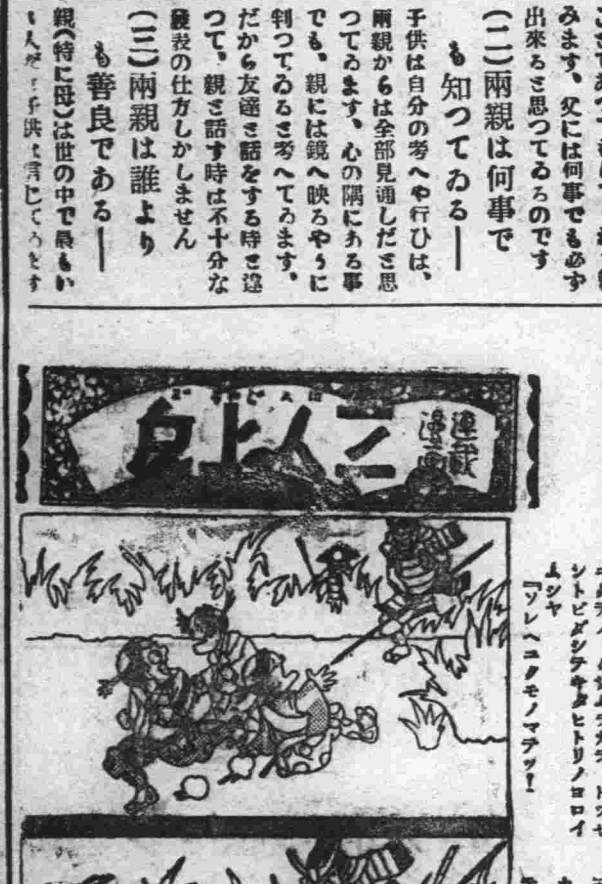 みます、父には何事でも必ず
出來ると思つてゐるのです
(二)兩親は何事で
も知つてゐる――
子供は自分の考へや行ひは、
兩親からは全部見通しだと思
つてゐます、心の隅にある事
でも、親には鏡へ映るやうに
判つてゐると考へてゐます、
だから友達と話をする時と違
つて、親と話す時は不十分な
發表の仕方しかしません
(三)兩親は誰より
も善良である――
親(特に母)は世の中で最もい
連載
漫畫
二人上戸
シトビダシテキタヒトリノヨロイ
ムシヤ
『ソレヘユクモノマテツ!